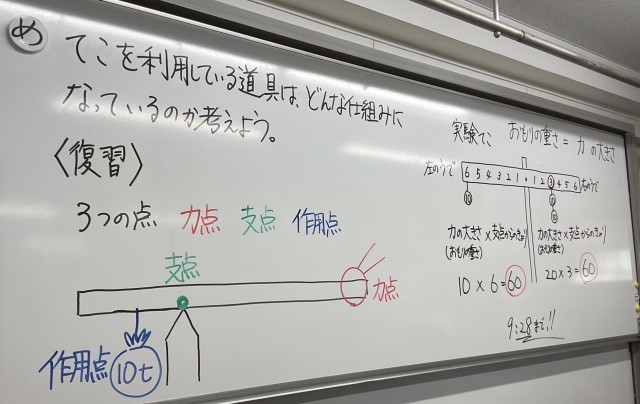 め
てこを利用している道具は、どんな仕組みに
なっているのか考えよう。
〈復習〉
3つの点 力点 支点 作用点
支点
力点
作用点 10t
実験てこ おもりの重さ = 力の大きさ
左のうで 6 5 4 3 2 1 1 2 3 4 5 6 右のうで
10
10
10
力の大きさ×支点からのきょり
(おもりの重さ)
10 × 6 = 60
力の大きさ×支点からのきょり
(おもりの重さ)
20 × 3 = 60
9:28まで!!